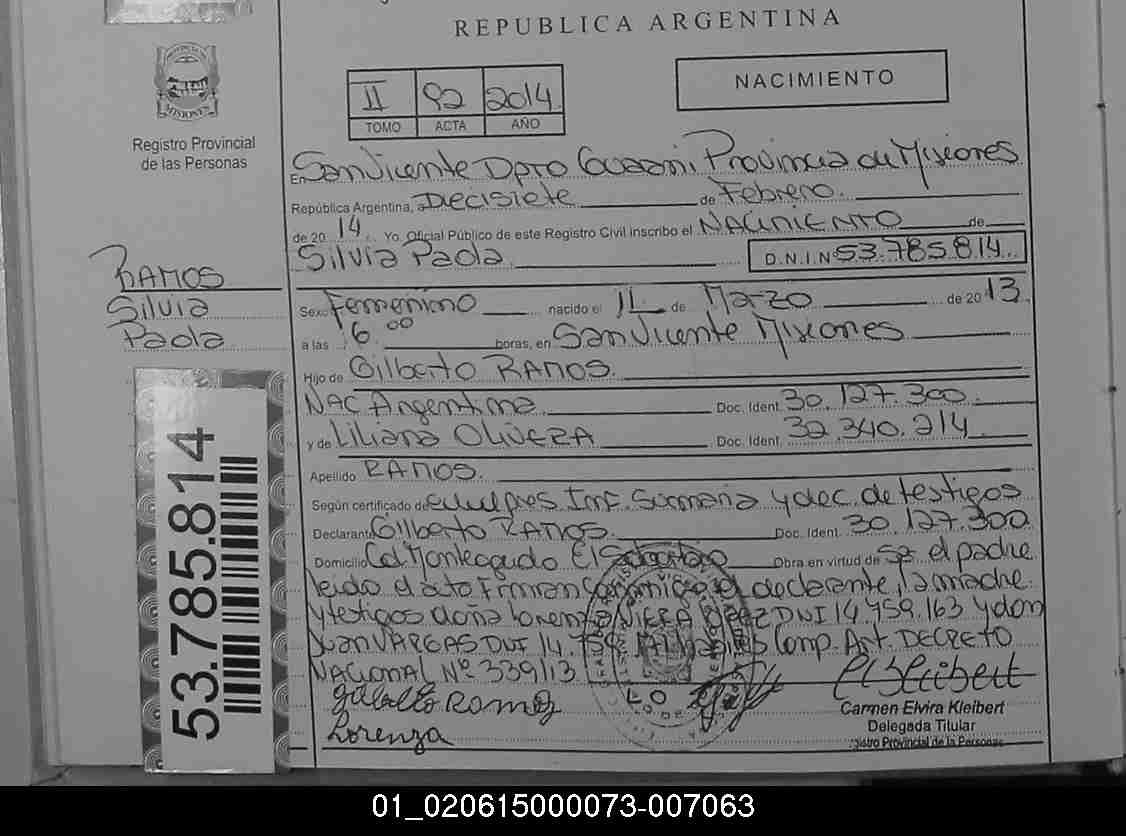 REPUBLICA ARGENTINA
PROVINCIA DE
MISIONES
Registro Provincial
de las Personas
II 92 2014
TOMO ACTA AÑO
NACIMIENTO
En San Vicente Dpto Guarani Provincia de Misiones
República Argentina, a Diecisiete de Febrero
de 20 14 Yo, Oficial Público de este Registro Civil inscribo el NACIMIENTO de
Silvia Paola D.N.I.Nº 53.785.814
RAMOS
Silvia
Paola
Sexo Femenino nacido el 11 de Marzo de 20 13
a las 6 00 horas, en San Vicente Misiones
Hijo de Gilberto RAMOS
NAC Argentina Doc. Ident. 30.127.300
y de Liliana OLIVERA Doc. Ident. 32.340.214
Apellido RAMOS
Según certificado de Inf. Sumaria y dec. de testigos
Declarante Gilberto RAMOS Doc. Ident. 30.127.300
Domicilio Col Monteagudo El Soberbio Obra en virtud de Ser el padre
leido el acto Firman conmigo el declarante, la madre
y testigos doña Lorenza DNI 14.759.163 y don
Juan VARGAS DNI 14.759. Comp. Art. DECRETO
NACIONAL Nº 339/13
Ramos
Lorenza
Carmen Elvira Kleibert
Delegada Titular
Registro Provincial de la Personas
53.785.814
01_020615000073-007063